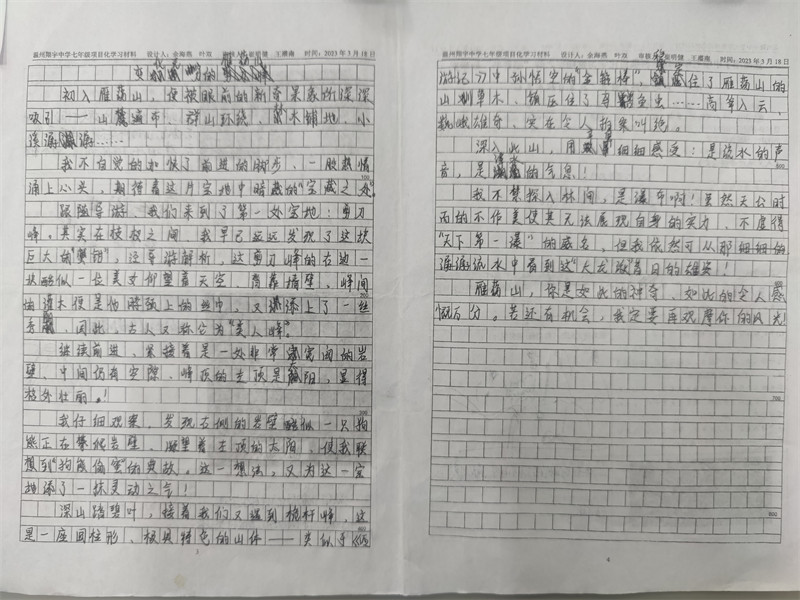 温州翔宇中学七年级项目化学习材料 设计人：余海燕 叶双 审核人：崔明健 王耀南 时间：2023年3月18日
初入雁荡山，便被眼前的新奇景象所深深
吸引——山麓遍布、群山环绕、草木铺地、小
溪潺潺……
我不自觉的加快了前进的脚步，一股热情
涌上心头，期待着这片宝地中暗藏的“宝藏之处”。
跟随导游，我们来到了第一处宝地：剪刀
峰。其实在枝杈之间，我早已远远发现了这块
巨大的“蟹钳”，经导游解析，这剪刀峰的右边一
块酷似一位美女仰望着天空，背靠墙壁，峰间
的灌木便是她胳颈上的丝巾，又增添上了一丝
，因此，古人又称它为“美人峰”。
继续前进，紧接着是一处非常的岩
壁，中间仍有空隙，峰顶的左顶是阳，显得
格外壮丽。！
我仔细观察，发现右侧的岩壁酷似一只狗
熊正在攀爬岩壁，凝望着左顶的太阳，使我联
想到“狗熊偷蜜”的典故。这一想法，又为这一宝
地添了一抹灵动之气！
深山踏碧叶，接着我们又遇到桅杆峰，这
是一座圆柱形、极具特色的山体——类似于《西
3
温州翔宇中学七年级项目化学习材料 设计人：余海燕 叶双 审核人：崔明健 王耀南 时间：2023年3月18日
游记》中孙悟空的“金箍棒”，住了雁荡山的
山川草木，镇压住了鸟兽鱼虫……高耸入云、
巍峨雄奇，实在令人拍案叫绝。
深入此山，用细细感受：是流水的声
音，是的气息！
我不禁探入林间，是瀑布啊！虽然天公时
而的不作美使其无法展现自身的实力，不虚得
“天下第一瀑”的盛名，但我依然可从那细细的
潺潺流水中看到这“大龙湫”昔日的雄姿！
雁荡山，你是如此的神奇、如此的令人感
慨万分。若还有机会，我定要再观摩你的风光！
4